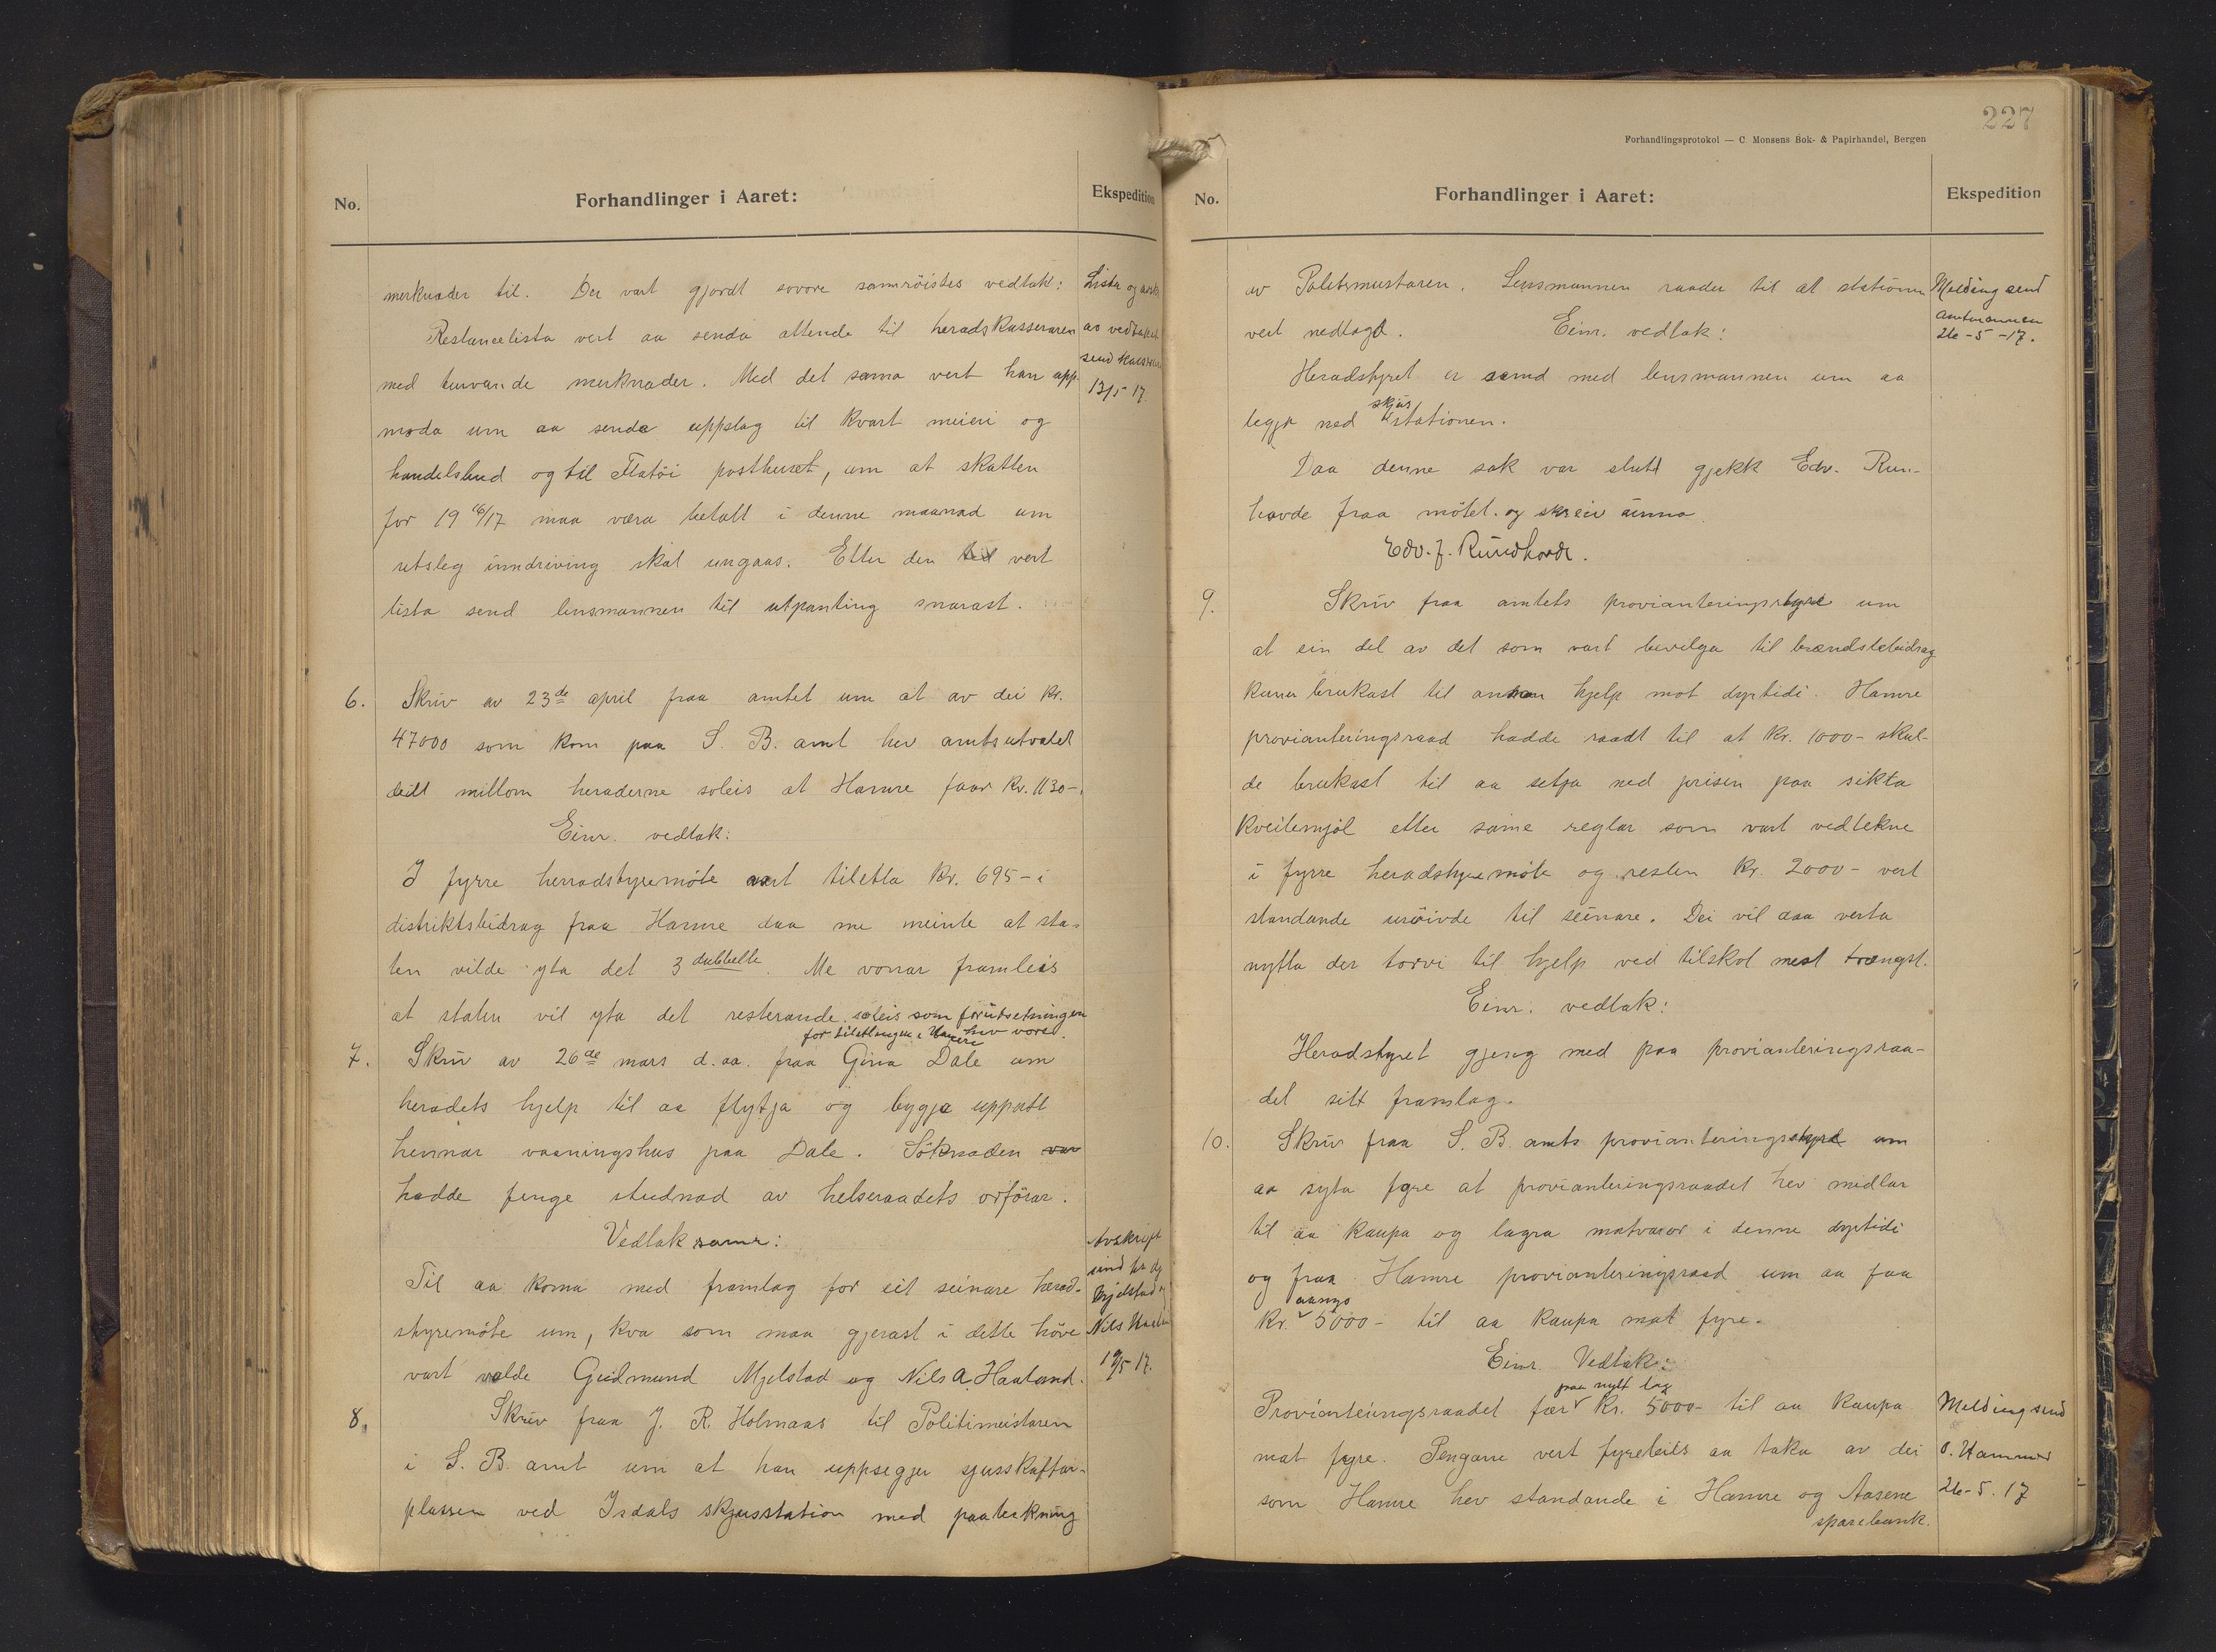 No.
Forhandlinger i Aaret:
Ekspedition
merknader til. Der vart gjordt sovore samröistes vedtak:
Restancelista vert aa senda attende til heradskasseraren
med turvande merknader. Med det sama vert han opp-
moda um aa senda uppslag til kvart meieri og
handelsbud og til Flatöi posthuset, um at skatten
for 19 16/17 maa væra betalt i denne maanad um
utsleg inndriving skal ungaas. Etter den tid vert
lista send lensmannen til utpanting snarast.
Lista og
av vedtaket
send
13/5 17.
6. Skriv av 23de april fraa amtet um at av dei kr.
47000 som kom paa S. B. amt hev amtsutvalet
deilt millom heraderne soleis at Hamre faar kr. 1130-.
Einr. vedtak:
I fyrre herradstyremöte vart tiletla kr. 695- i
distriktsbidrag fraa Hamre daa me meinte at sta-
ten vilde yta det 3 dubbelte. Me vonar framleis
at staten vil yta det resterande soleis som forutsetningen
for tiletlingen i Hamre hev vore.
7. Skriv av 26de mars d. aa. fraa Gina Dale um
heradets hjelp til aa flytja og byggja uppatt
hennar vaaningshus paa Dale. Söknaden var
hadde fenge studnad av helseraadets orförar.
Vedtak samr:
Til aa koma med framlag for eit seinare herad-
styremöte um, kva som maa gjerast i dette höve
vart valde Gudmund Mjelstad og Nils A. Haaland.
Avskrift
send
Mjelstad og
Nils
19/5 17.
8. Skriv fraa J. R. Holmaas til Politimeistaren
i S. B. amt um at han uppsegjer sjusskaffar-
plassen ved Isdals skjusstation med paateikning
227
Forhandlingsprotokol — C. Monsens Bok- & Papirhandel, Bergen
No.
Forhandlinger i Aaret:
Ekspedition
av Politimeistaren. Lensmannen raader til at stationen
vert nedlagd. Einr. vedtak:
Melding send
amtmannen
26-5-17.
Heradstyret er samd med lensmannen um aa
skjus
leggja ned stationen.
Daa denne sak var slutt gjekk Edv. Run-
hovde fraa mötet og skreiv unna
Edv. J. Rundhovde.
9. Skriv fraa amtets provianteringsstyre um
at ein del av det som vart bevilga til brændslebidrag
kunne brukast til annan hjelp mot dyrtidi. Hamre
provianteringsraad hadde raadt til at kr. 1000- skul-
de brukast til aa setja ned prisen paa sikta
kveitemjöl etter same reglar som vart vedtekne
i fyrre heradstyremöte og resten kr. 2000- vert
standande uröivde til seinare. Dei vil daa verta
nytta der torvi til hjelp ved tilskot mest trængst.
Einr. vedtak:
Heradstyret gjeng med paa provianteringsraa-
det sitt framlag.
10. Skriv fraa S. B. amts provianteringsstyre um
aa syta fyre at provianteringsraadet hev midlar
til aa kaupa og lagra matvaror i denne dyrtidi
og fraa Hamre provianteringsraad um aa faa
kr. 5000- til aa kaupa mat fyre.
Einr. Vedtak:
paa nytt lag
Provianteringsraadet fær kr. 5000- til aa kaupa
mat fyre. Pengarne vert fyrebeils aa taka av dei
som Hamre hev standande i Hamre og Aasene
sparebank.
Melding send
O. Hammer
26-5.17